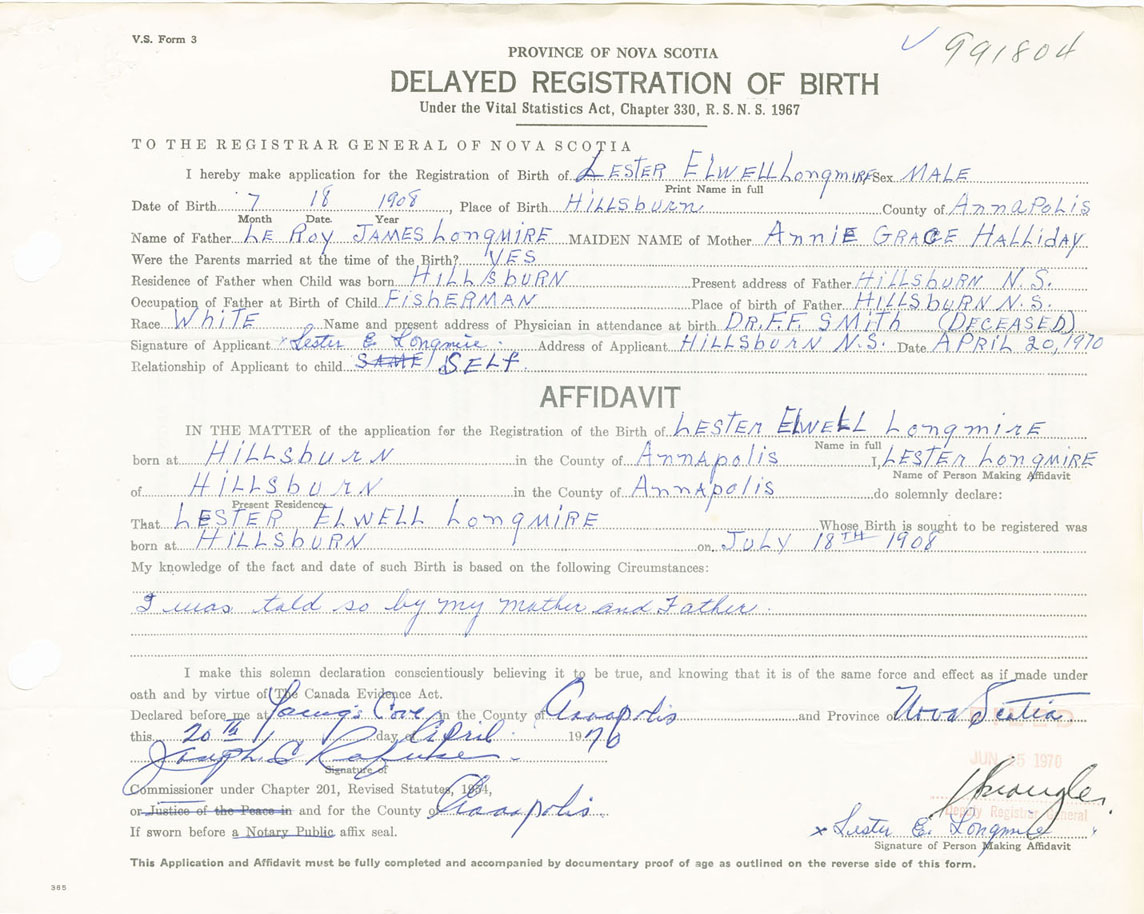 V.S. Form 3
✓ 991804
PROVINCE OF NOVA SCOTIA
DELAYED REGISTRATION OF BIRTH
Under the Vital Statistics Act, Chapter 330, R.S.N.S. 1967
TO THE REGISTRAR GENERAL OF NOVA SCOTIA
I hereby make application for the Registration of Birth of LESTER ELWELL LongmIRE Sex MALE
Print Name in full
Date of Birth 7 18 1908, Place of Birth HILLSburn County of AnnAPoLIS
Month Date Year
Name of Father LE Roy JAMES LongMIRE MAIDEN NAME of Mother AnniE GRACE HALLIDAY
Were the Parents married at the time of the Birth? YES
Residence of Father when Child was born HILLSbURN Present address of Father HILLSbURN N.S.
Occupation of Father at Birth of Child FISHERMAN Place of birth of Father HILLSbURN N.S.
Race WHITE Name and present address of Physician in attendance at birth DR. F.F. SMITH (DECEASED)
Signature of Applicant x Lester E. Longmire. Address of Applicant HILLSbURN N.S. Date APRIL 20, 1970
Relationship of Applicant to child SAME / SELF
AFFIDAVIT
IN THE MATTER of the application for the Registration of the Birth of LESTER ELWELL LongmiRE
Name in full
born at HILLSbuRN in the County of AnnApoLis I, LESTER LongMIRE
Name of Person Making Affidavit
of HILLSbuRN in the County of AnnApoLis do solemnly declare:
Present Residence
That LESTER ELWELL LongMIRE Whose Birth is sought to be registered was
born at HILLSbURN on JULY 18TH 1908
My knowledge of the fact and date of such Birth is based on the following Circumstances:
I was told so by my mother and Father.
I make this solemn declaration conscientiously believing it to be true, and knowing that it is of the same force and effect as if made under
oath and by virtue of The Canada Evidence Act.
Declared before me at Young's Cove in the County of Annapolis and Province of Nova Scotia
this 20th day of April 1970
JUN 15 1970
Joseph C
Signature of
Commissioner under Chapter 201, Revised Statutes, 1954,
or Justice of the Peace in and for the County of Annapolis
Deputy Registrar General
If sworn before a Notary Public affix seal.
x Lester E. Longmire
Signature of Person Making Affidavit
This Application and Affidavit must be fully completed and accompanied by documentary proof of age as outlined on the reverse side of this form.
365